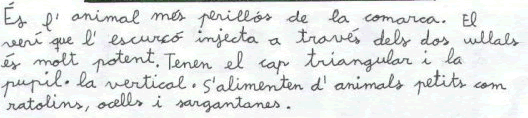 És l'animal més perillós de la comarca. El
verí que l'escurçó injecta a través dels dos ullals
és molt potent. Tenen el cap triangular i la
pupil·la vertical. S'alimenten d'animals petits com
ratolins, ocells i sargantanes.